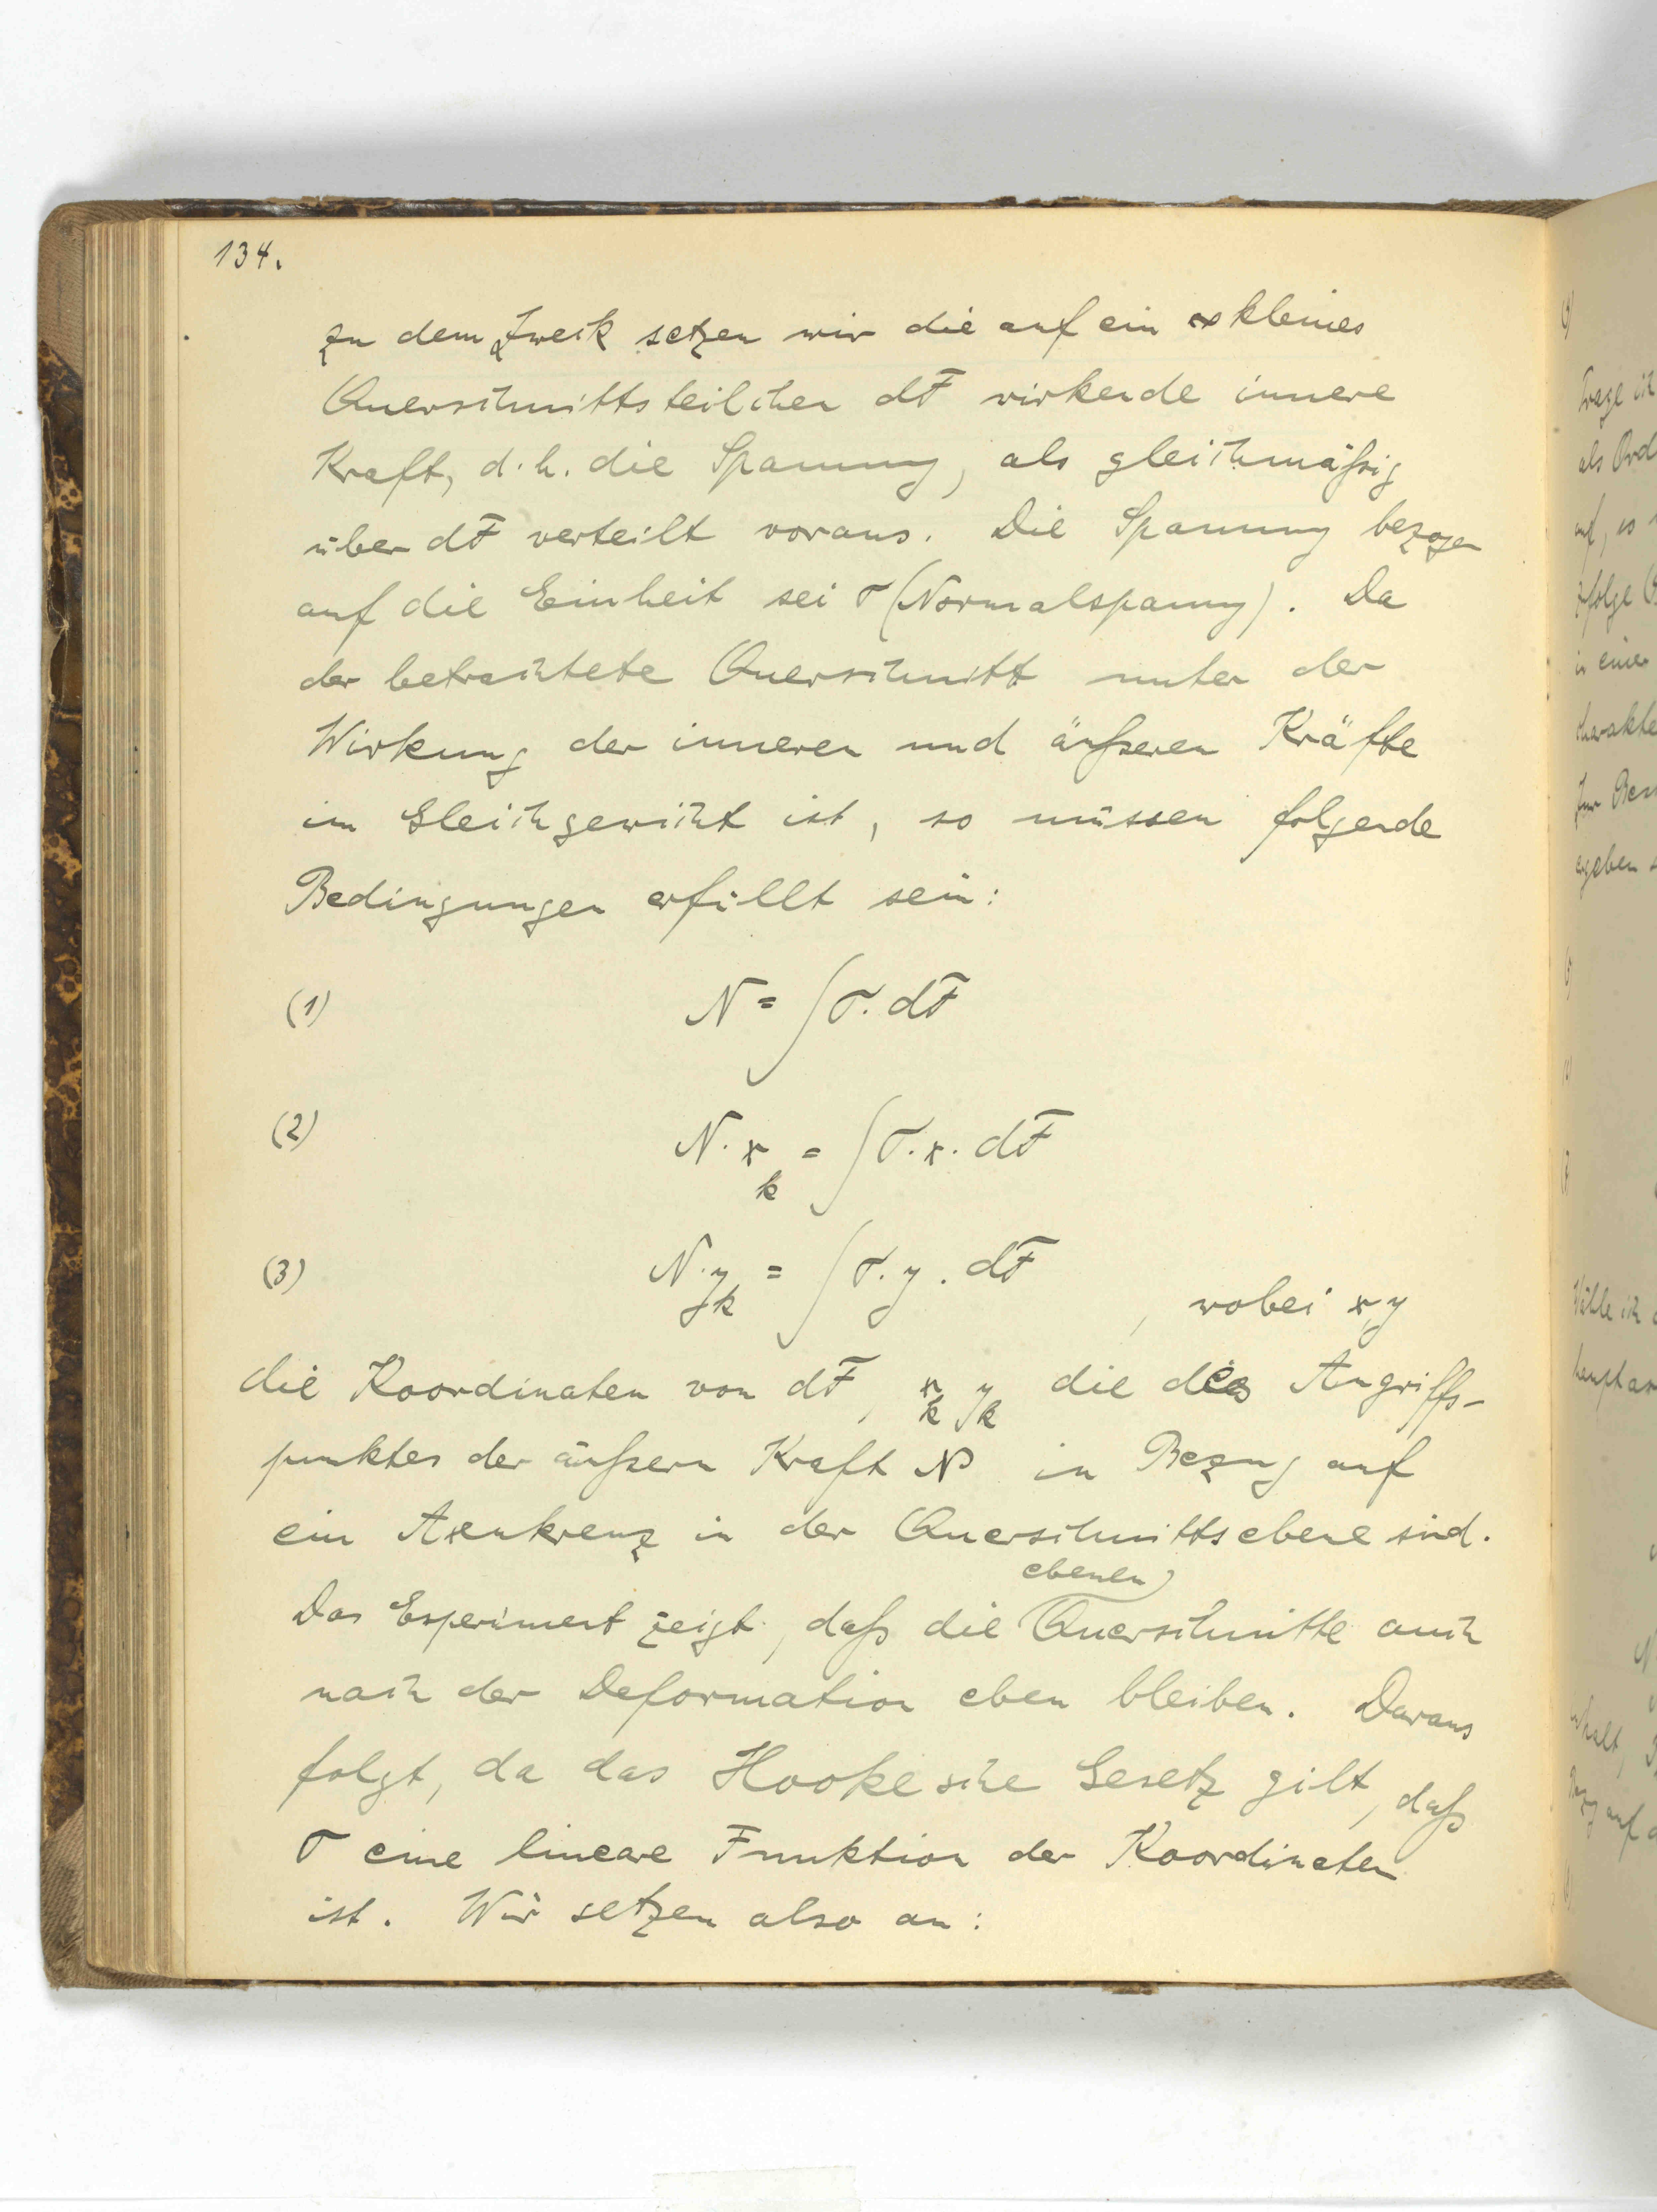 134.
zu dem Zweck setzen wir die auf ein ∞ kleines
Querschnittsteilchen dF wirkende innere
Kraft, d.h. die Spannung, als gleichmäßig
über dF verteilt voraus. Die Spannung bezogen
auf die Einheit sei σ (Normalspannung). Da
der betrachtete Querschnitt unter der
Wirkung der inneren und äußeren Kräfte
im Gleichgewicht ist, so müssen folgende
Bedingungen erfüllt sein:
(1) N = ∫σ. dF
(2) N. x_k = ∫σ. x. dF
(3) N. y_k = ∫σ. y. dF , wobei x, y
die Koordinaten von dF, x_k y_k die des Angriffs-
punktes der äußern Kraft N in Bezug auf
ein Axenkreuz in der Querschnittsebene sind.
ebenen
Das Experiment zeigt, daß die Querschnitte auch
nach der Deformation eben bleiben. Daraus
folgt, da das Hookesche Gesetz gilt, daß
σ eine lineare Funktion der Koordinaten
ist. Wir setzen also an:
Trage ich
als Ord
auf, es
zfolge
in einer
charakte
Zur
ergeben
Wähle ich
hauptax
auf